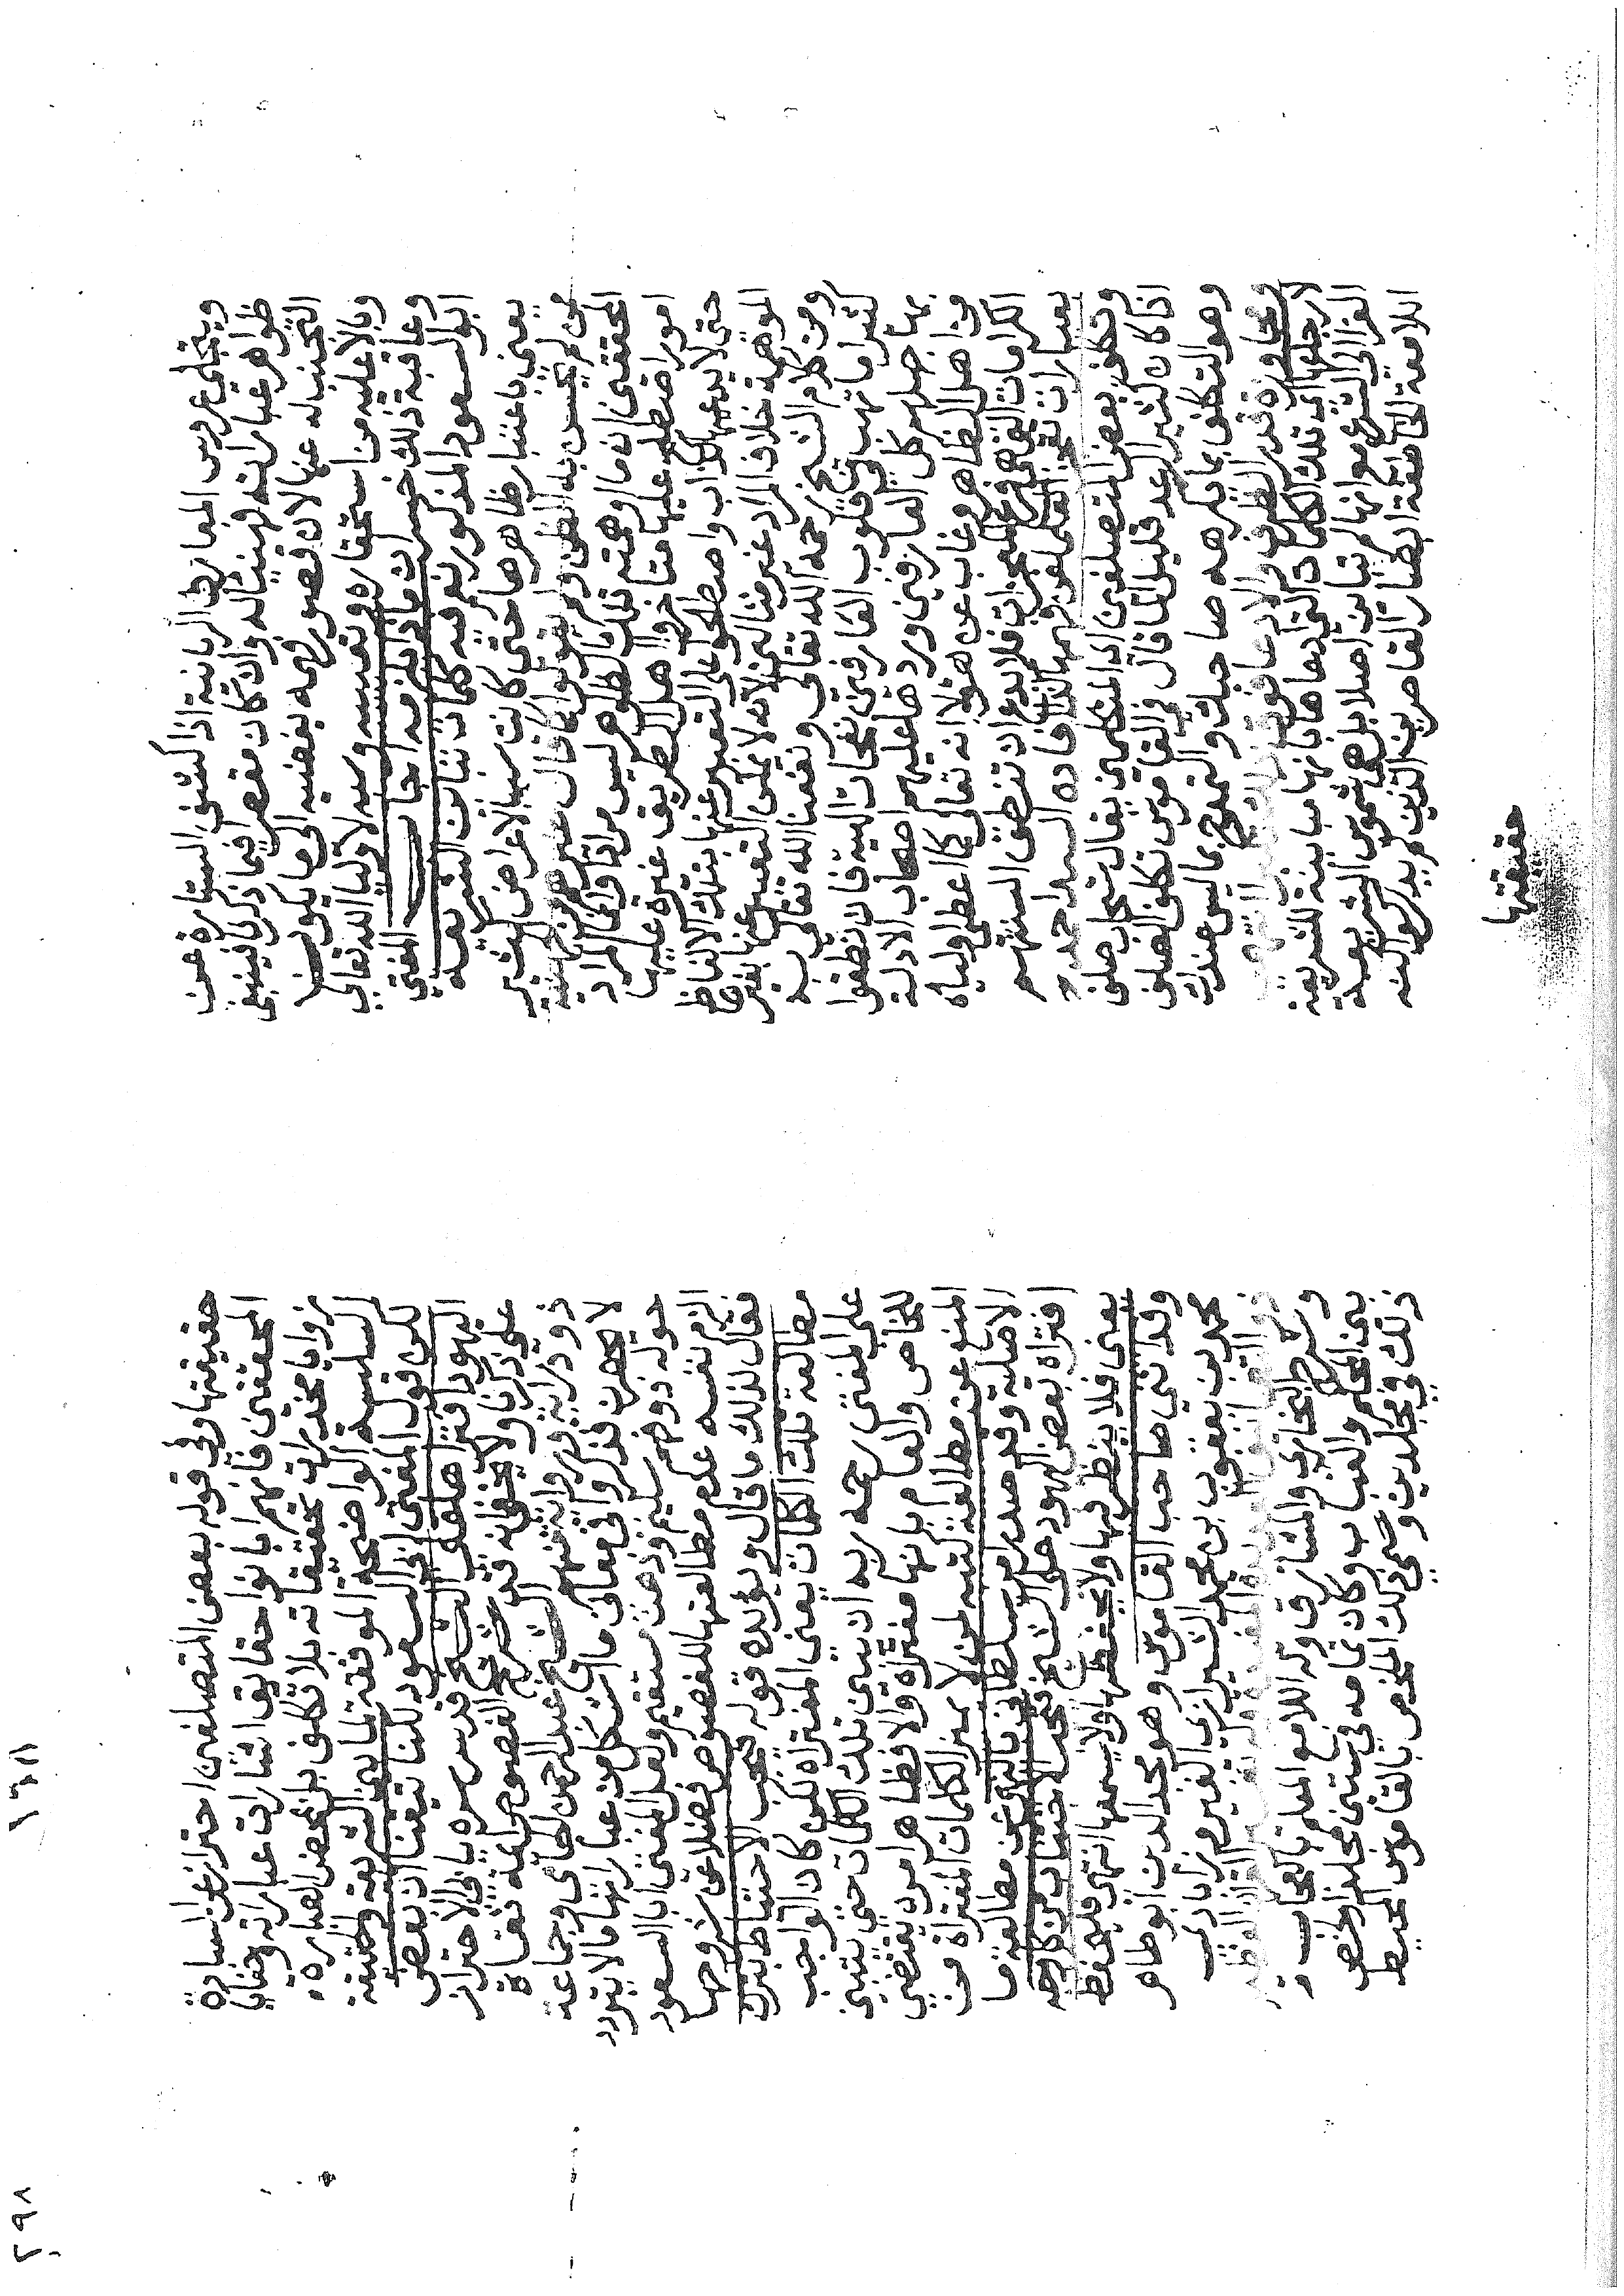 ويتجلى عروس المعارف الربانية اذا كشف الستارة عن
ظواهر عباراته فهنيئا له وان كان مقصرا فيما ذكرنا فينبغي
التجنب له عنها لان قصور فهمه يفضيه الى ما يكون سببا
وبالا عليه من استحقاره وسبه لاولياء الله تعالى
وعاقبة ذلك خسران اجاب المفتي
ابو السعود المذكور نعم فيه كلمات تباين الشريعة
يعني باعتبار ظاهرها حتى كانت سببا لاعراض كثير
ممن لم يحسن به الظن ولم يقولوا كما قال غيرهم من
المحققين ان ما اوهمته تلك الظواهر ليس مرادا وانما المراد
امور اصطلح عليها متأخروا اهل الطريق غيرة عليها
حتى لا يدعيها الكذاب واصطلحوا على التعبير عنها بتلك الالفاظ
الموهمة خلاف المراد غير مبالين لانه لا يمكن التعبير عنها بغيرها
ومن كلام الشيخ رحمه الله تعالى ونفعنا الله تعالى به
كثيرا ما تهب على قلوب العارفين نفحات الهية فان نطقوا
بها جهلهم كمل العارفين وردها عليهم اصحاب الادلة
من اهل الظاهر وغاب عن هؤلاء انه تعالى كما اعطى اولياءه
الكرامات التي هي فرع المعجزات فلا بدع ان تنطق السنتهم
بعبارات تعجز العلماء عن فهمها كذا افاده السيد احمد
وتكلف بعض المتصلفين اي المتكلمين يقال سحاب صلف
اذا كان كثير الرعد قليل الماء قال في القاموس تكلف الصلف
وهو التكلف بما يكرهه صاحبك والتمدح بما ليس عندك
ومجاوزة قدر الظرف والادعاء فوق
لارجاعها اي تلك الكلمات التي ادعاها بانها مباينة للشريعة
الغراء الى الشرع مع انها لم تباين اصلا بل هي شموس الشريعة
اللامعة الخاطفة ابصار القاصرين الذين لم يدركوا كنه
حقيقتها
حقيقتها وفي قوله بعض المتصلفين احتراز عن السادة
المحققين فانهم ابانوا حقايق اشارات عباراته وخفايا
زوايا مخدرات تحقيقاته بلا تكلف بل بمحض العبارة
السليسة الواضحة الموفقة بما بين الشريعة والحقيقة
لكن قول المفتي ابي السعود لكنا تيقنا ان بعض
اليهود افتراها على الشيخ قدس سره يأبى الاحتراز
على ما ذكرنا ولا يخفى انه قد شرح الفصوص جماعة ثقاة
ذو دراية ورواية فمنهم الشيخ عبد الرحمن الجامي وجماعة
لا تحصى فقرروا في معاني ما اشكل من عباراتها ما لا يتردد
حوله ذو فهم سليم وذهن مستقيم ولعل المفتي ابا السعود
الزم نفسه عدم مطالعتها للفصوص فضلا عن شروحها
فقال لذلك ما قال ويؤيده قوله فيجب الاحتياط بترك
مطالعة تلك الكلمات يعني المفتراه لكن كان الواجب
على المفتي رحمه ربه ان يبين تلك الكلمات حتى يتبين
للخاص والعام بانها مفتراة والا فظاهر امره يقتضي
المنع عن مطالعة كتبه لمن لا يميز الكلمات المفتراة من
الاصلية وقد صدر امر سلطاني بالنهي عن مطالعة ما
افتراه بعض اليهود على الشيخ فيجب الاجتناب من كل وجه
يعني فلا ينظر فيها ولا يحفظها ولا يسمعها انتهى فليحفظ
وقد اثنى صاحب القاموس وهو مجد الدين ابو طاهر
محمد بن يعقوب بن محمد الشيرازي الفيروزابادي
وشرح البخاري والمشارق وله اللامع المعلم العجاب
بين المحكم والعباب وكان تمامه في ستين مجلدا ولخص
ذلك في مجلدين وسمى ذلك الملخص بالقاموس المحيط
١٦١١
٢٩٨